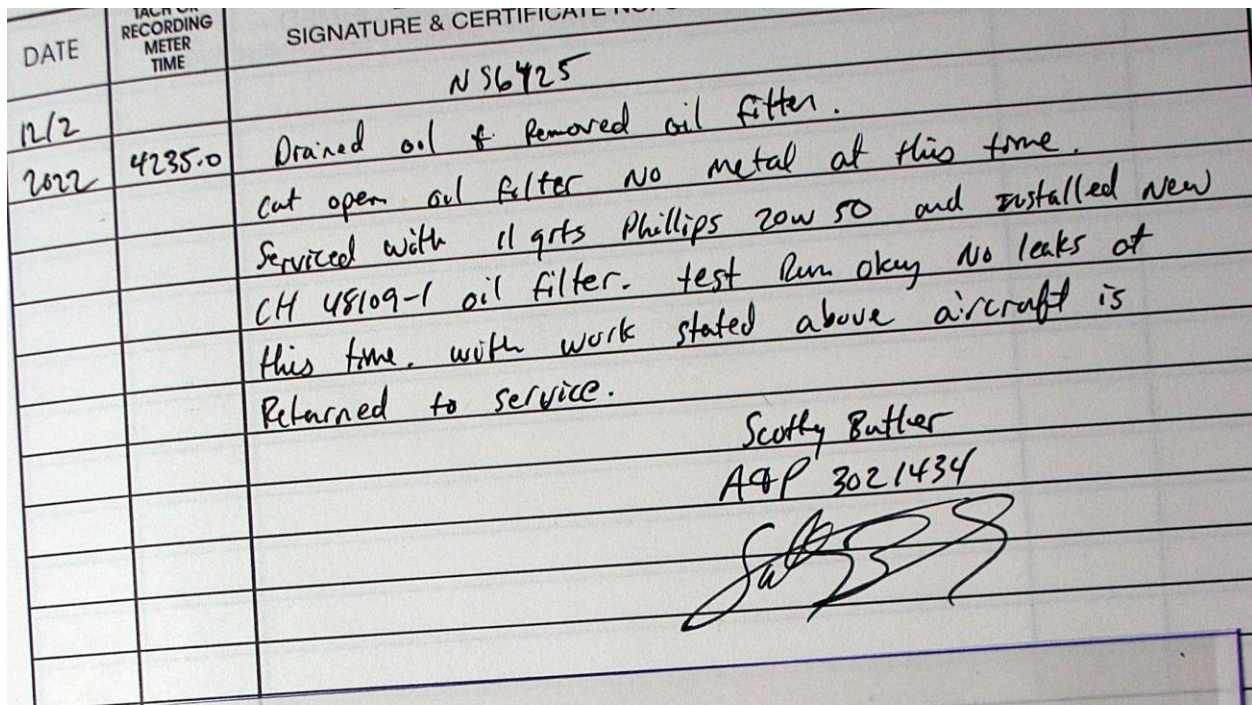 TACH OR
RECORDING
METER
TIME
DATE
SIGNATURE & CERTIFICATE NO.
N56425
12/2
2022
4235.0
Drained oil & Removed oil filter.
cut open oil filter No metal at this time.
Serviced with 11 qrts Phillips 20w 50 and installed New
CH 48109-1 oil filter. test Run okay No leaks at
this time. with work stated above aircraft is
Returned to service.
Scotty Butler
A&P 3021434